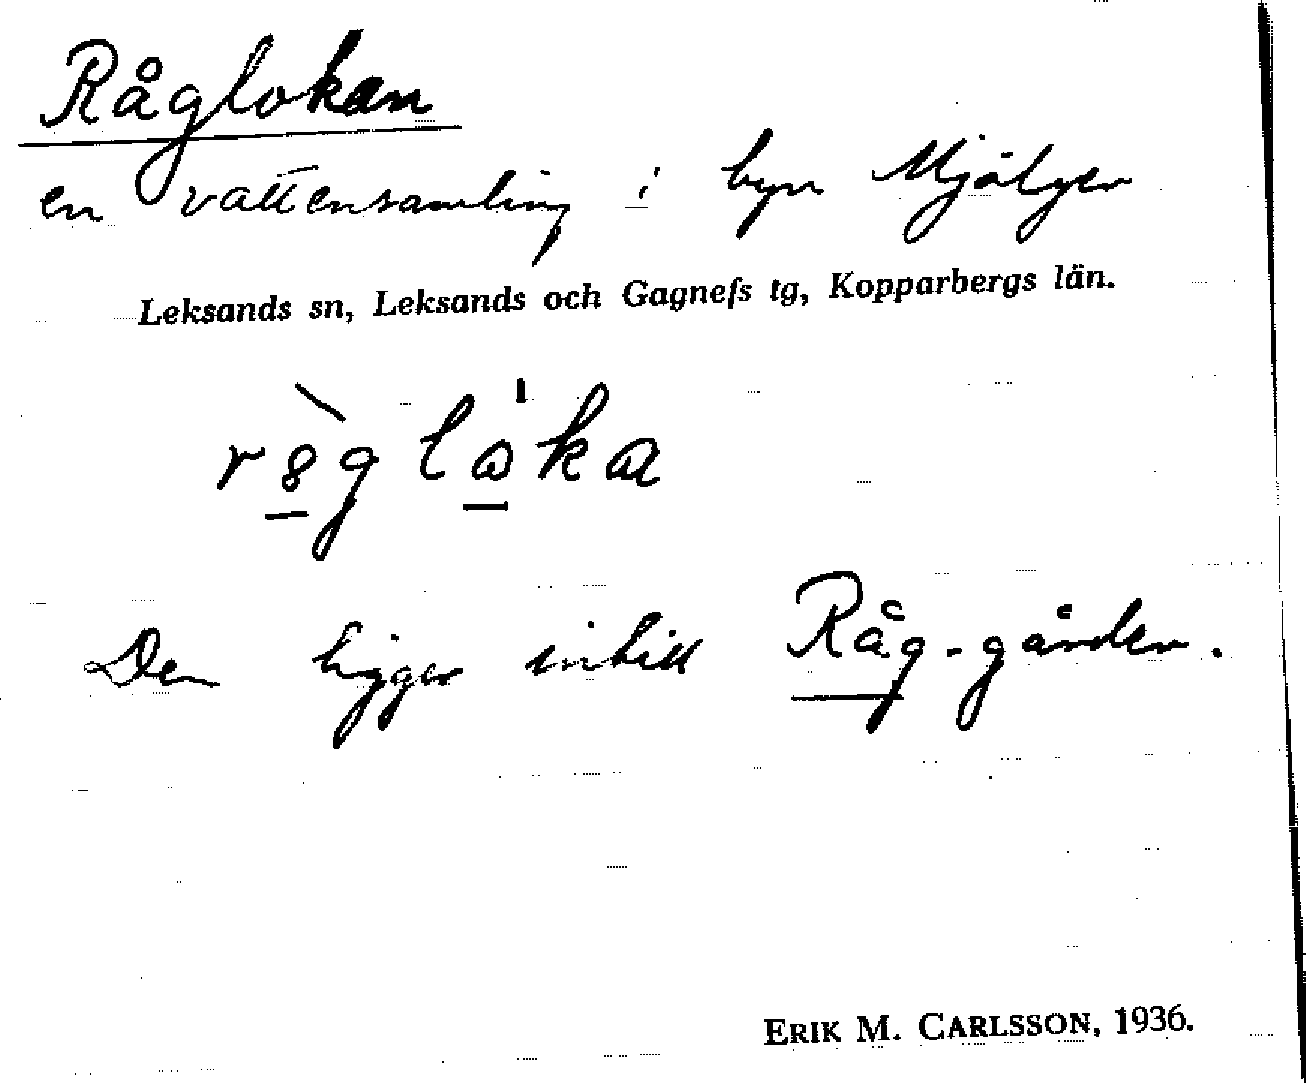 Råglokan
en vattensamling i byn Mjälgen
Leksands sn, Leksands och Gagnefs tg, Kopparbergs län.
Den ligger intill Råg-gården.
ERIK M. CARLSSON, 1936.